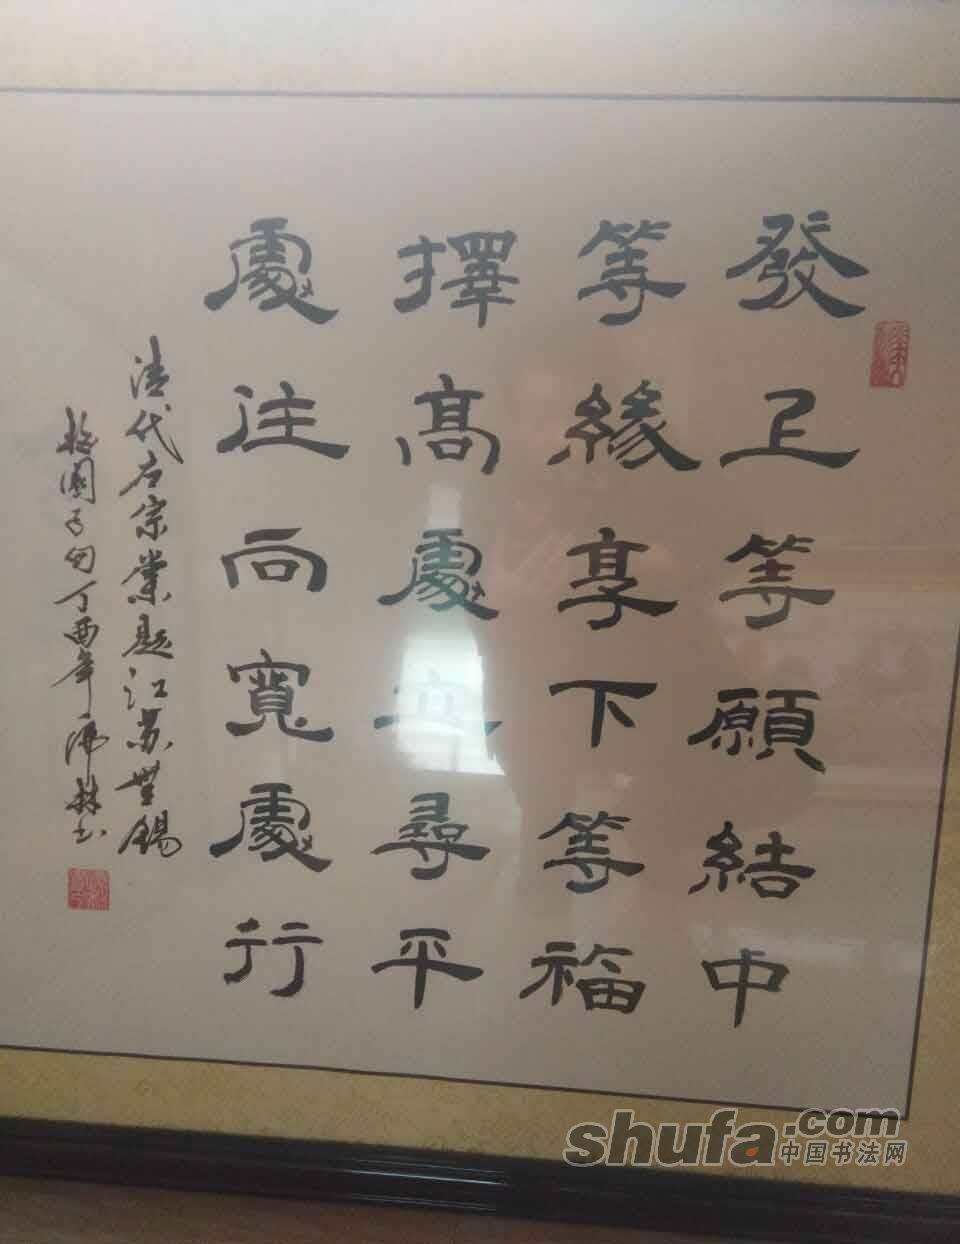 發上等願結中
等緣享下等福
擇高處立尋平
處住向寬處行
清代左宗棠题江苏無錫
梅園 句丁酉年 林书
shufa.com
中国书法网